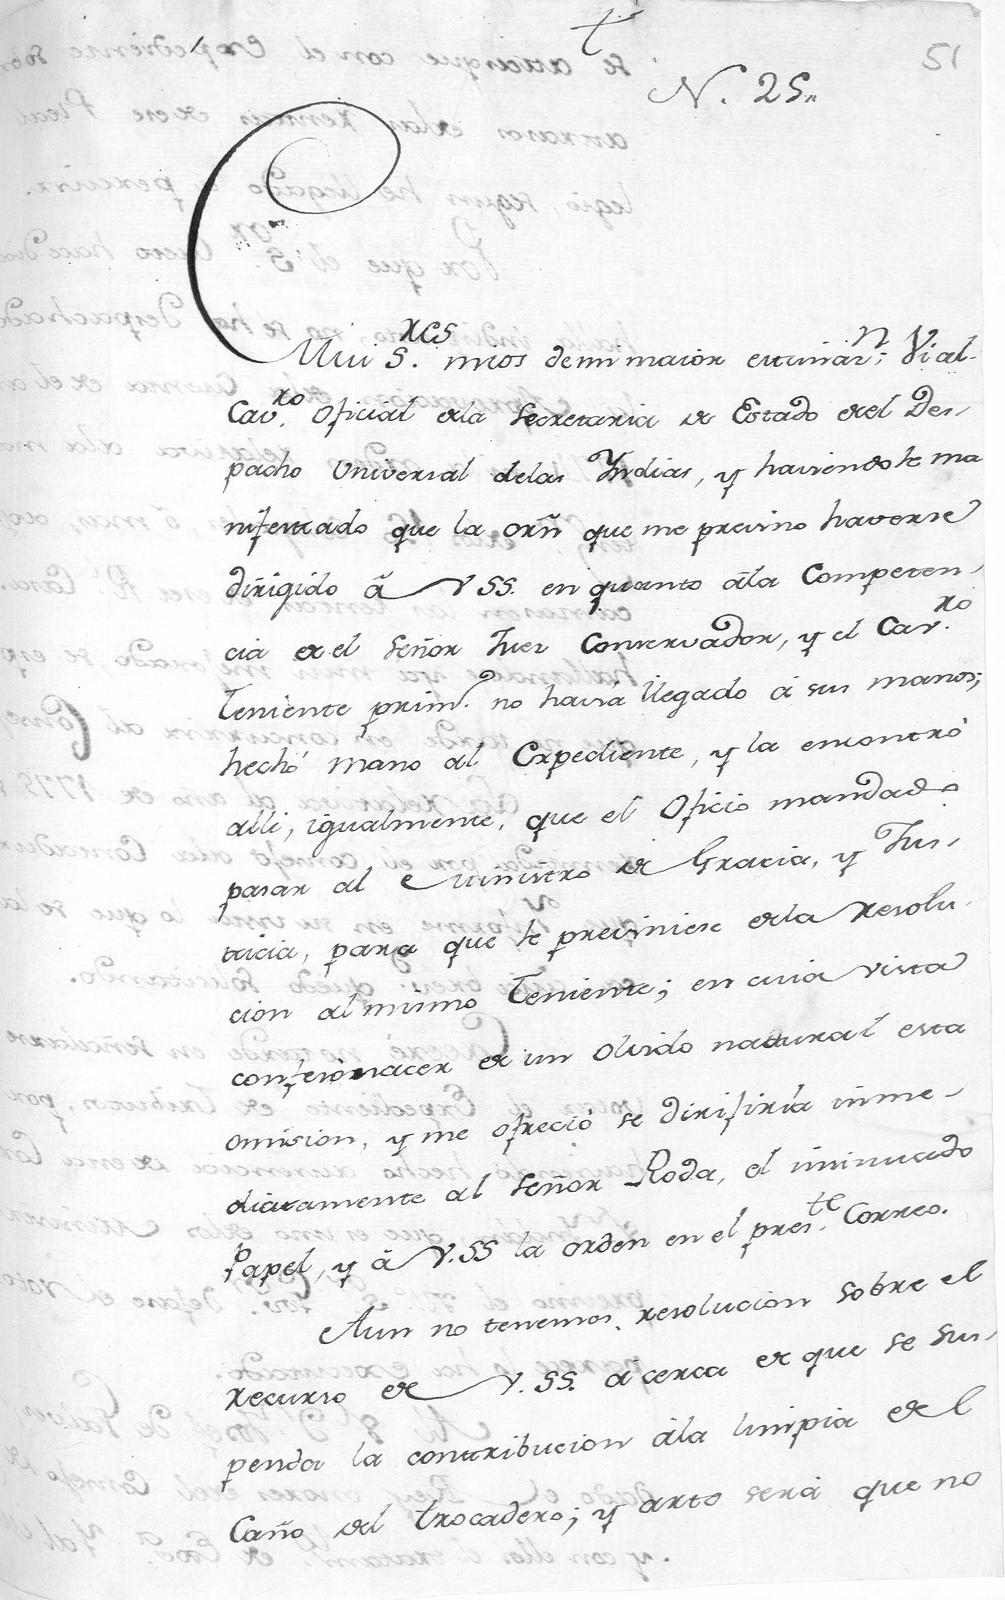 51
N. 25,,
Mui S.res mios de mi maior estimaz.n; Vi al
Cav.ro Oficial de la Secretaria de Estado de el Des-
pacho Universal de las Yndias, y haviendole ma
nifestado que la orñ que me previno haverse
dirigido â VSS. en quanto âla Competen-
cia de el Señor Juez Conservador, y el Cav.ro
Teniente prim.o no havia llegado á sus manos;
hechó mano al Expediente, y la encontró
alli, igualmente, que el Oficio mandado
pasar al Ministro de Gracia, y Jus-
ticia, para que le previniese de la resolu-
cion al mismo Teniente; en cuia vista
confesó nacer de un olvido natural esta
omision, y me ofreció se dirifiria inme-
diatamente al Señor Roda, el insinuado
Papel, y â V.SS la orden en el pres.te Correo.
Aun no tenemos resolucion sobre el
recurso de V.SS. acerca de que se sus-
penda la contribucion âla limpia de el
Caño del Trocadero; y arto será que no